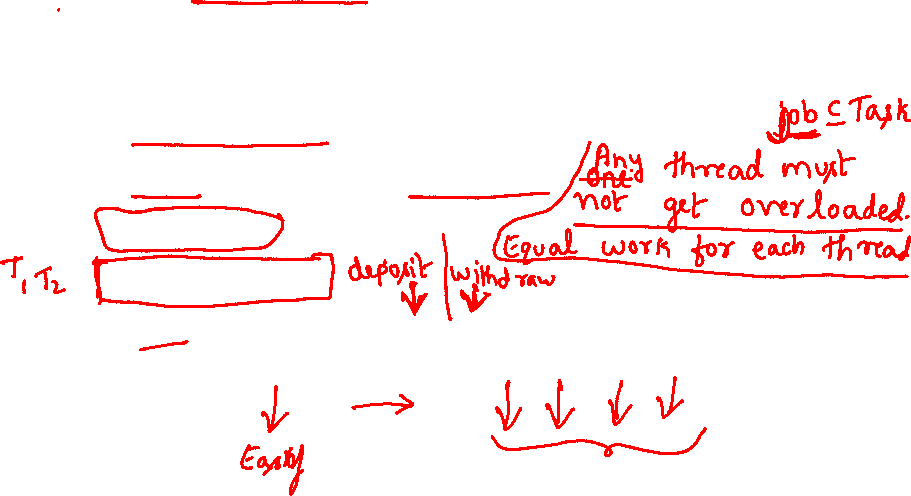 job ⊆ Task
Any thread must
not get overloaded.
Equal work for each thread
T1, T2
deposit | withdraw
Easily